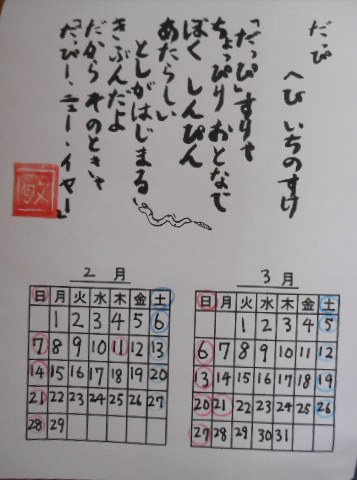 だっぴ
へび いちのすけ
「だっぴ」すりゃ
ちょっぴり おとなで
ぼく しんぴん
あたらしい
としがはじまる
きぶんだよ
だから そのときゃ
「だっぴー・ニュー・イヤー」
2月
日 月 火 水 木 金 土
1 2 3 4 5 6
7 8 9 10 11 12 13
14 15 16 17 18 19 20
21 22 23 24 25 26 27
28 29
3月
日 月 火 水 木 金 土
1 2 3 4 5
6 7 8 9 10 11 12
13 14 15 16 17 18 19
20 21 22 23 24 25 26
27 28 29 30 31